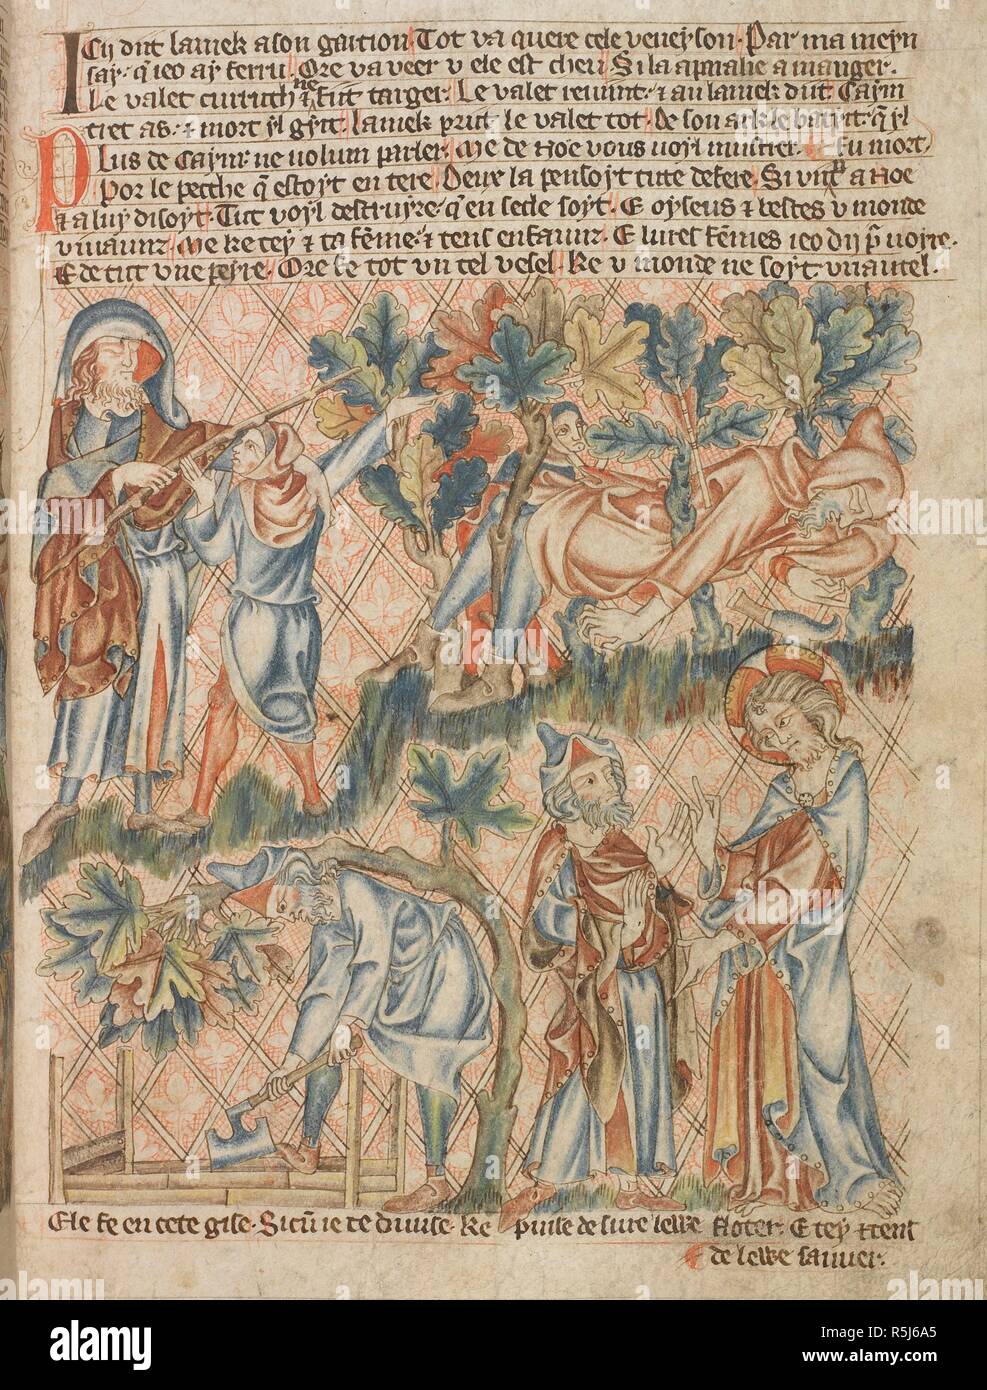 Icy dut lamek a son garcion. Tot va quere cele veneyson. Par ma meyn
say. q ieo ay ferru. Ore va veer v ele est cheu Si la aparalie a manger.
Le valet curruth ne fut targer. Le valet revint. & au lamek dut. Caym
& mort yl gyst. lamek prut le valet tot. De son ark le batit. q yl
fu mort.
Plus de Caym ne volum parler. Me de Noe vous voyl mustrer.
Por le pecche q estoyt en tere. Deux la pensoyt tute defere. Si vint a Noe
& a luy disoyt. Tut voyl destruyre. q en secle soyt. E oyseus & bestes v monde
vivaunz. Me ke tey & ta feme. & tens enfaunz. E lures femes ieo dy p voyre.
E de tut une peyre. Ore fe tot un tel vesel. Ke v monde ne soyt vn autel.
E le fe en cete gise. Sicum ie te divise. Ke puise de sure lewe floter. E tey
de lewe sauver.
alamy
Image ID: R5J6A5
www.alamy.com